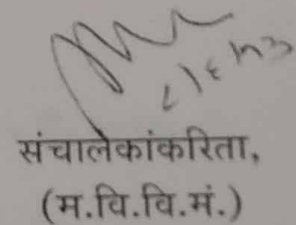 संचालकांकरिता,
(म.वि.वि.मं.)